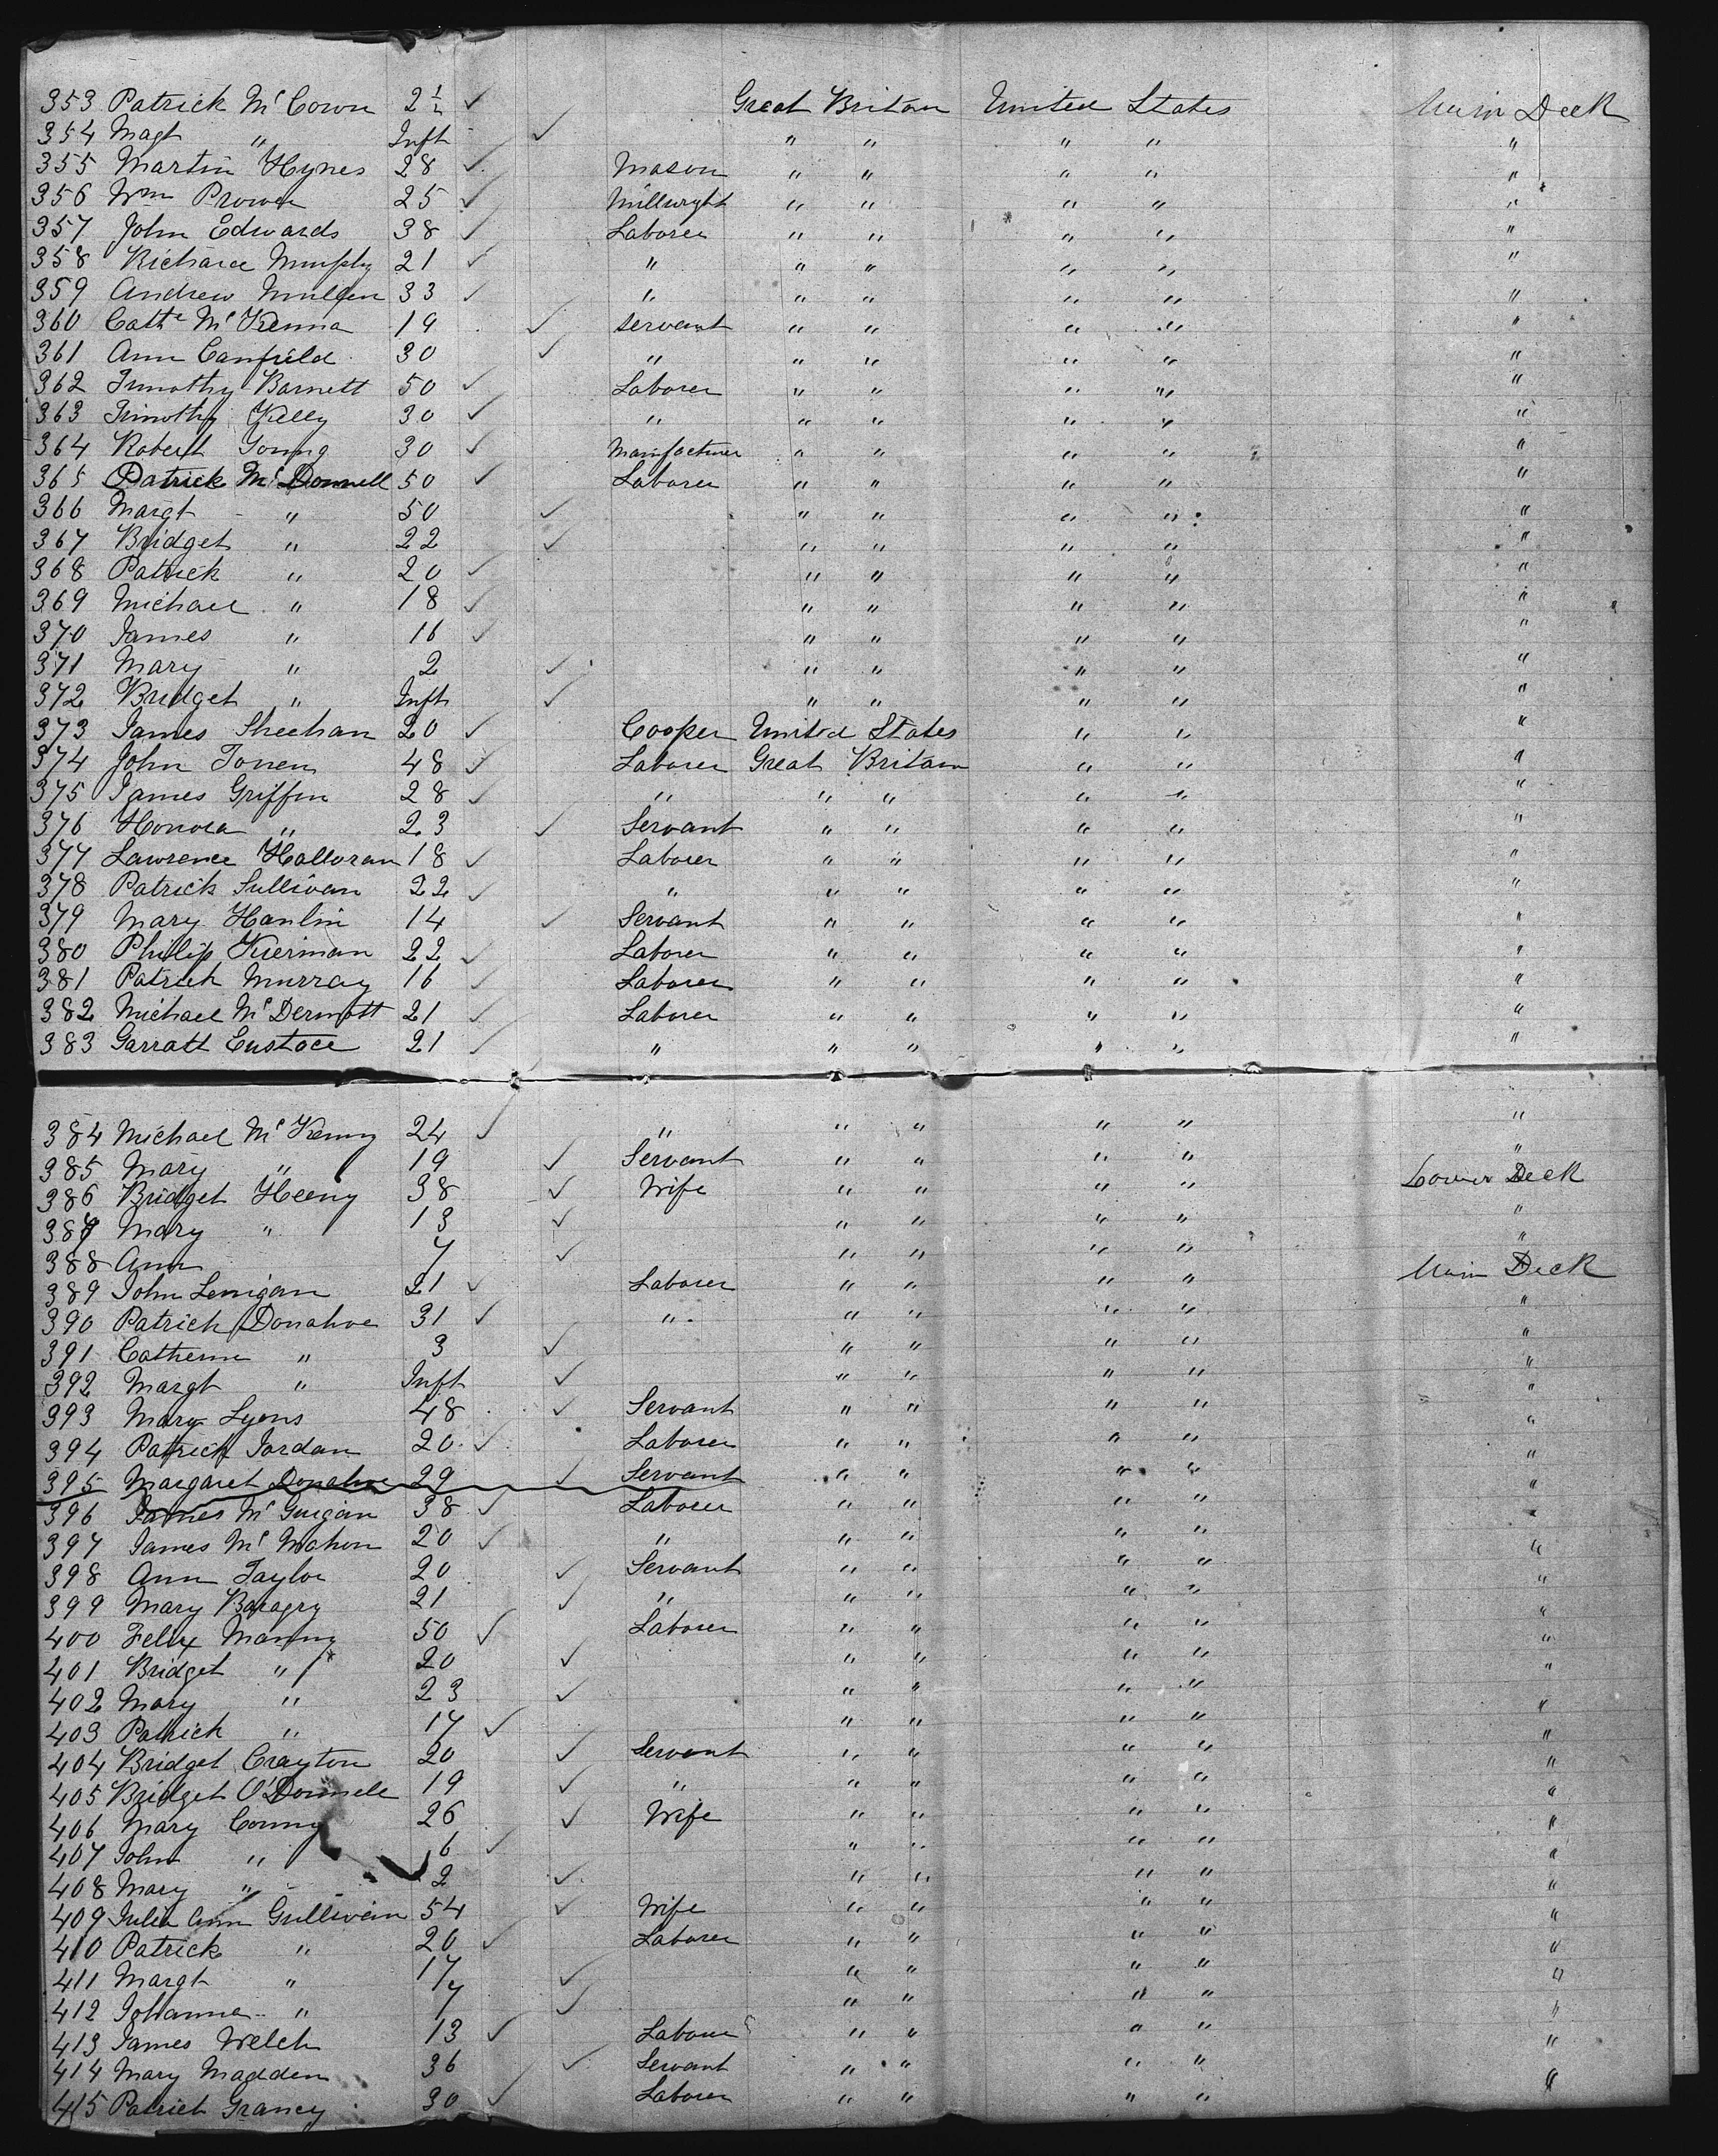 353 Patrick McCown 2½ ✓ Great Britain United States Main Deck
354 Magt " Inft ✓ " " " " "
355 Martin Hynes 28 ✓ Mason " " " " "
356 Wm Prowen 25 ✓ Millwright " " " " "
357 John Edwards 38 ✓ Laborer " " " " "
358 Richard Murphy 21 ✓ " " " " " "
359 Andrew Mullen 33 ✓ " " " " " "
360 Cathe McKenna 19 ✓ Servant " " " " "
361 Ann Canfield 30 ✓ " " " " " "
362 Timothy Barnett 50 ✓ Laborer " " " " "
363 Timothy Kelly 30 ✓ " " " " " "
364 Robert Young 30 ✓ Manufacturer " " " " "
365 Patrick McDonnell 50 ✓ Laborer " " " " "
366 Margt " 50 ✓ " " " " "
367 Bridget " 22 ✓ " " " " "
368 Patrick " 20 ✓ " " " " "
369 Michael " 18 ✓ " " " " "
370 James " 16 ✓ " " " " "
371 Mary " 2 ✓ " " " " "
372 Bridget " Inft ✓ " " " " "
373 James Sheehan 20 ✓ Cooper United States " " "
374 John Torren 48 ✓ Laborer Great Britain " " "
375 James Griffin 28 ✓ " " " " " "
376 Honora " 23 ✓ Servant " " " " "
377 Lawrence Halloran 18 ✓ Laborer " " " " "
378 Patrick Sullivan 22 ✓ " " " " " "
379 Mary Hanlin 14 ✓ Servant " " " " "
380 Phillip Kierman 22 ✓ Laborer " " " " "
381 Patrick Murray 16 ✓ Laborer " " " " "
382 Michael McDermott 21 ✓ Laborer " " " " "
383 Garratt Eustace 21 ✓ " " " " " "
384 Michael McKenny 24 ✓ " " " " " "
385 Mary " 19 ✓ Servant " " " " "
386 Bridget Heeny 38 ✓ Wife " " " " Lower Deck
387 Mary " 13 ✓ " " " " "
388 Ann 7 ✓ " " " " "
389 John Lenigan 21 ✓ Laborer " " " " Main Deck
390 Patrick Donahoe 31 ✓ " " " " " "
391 Catherine " 3 ✓ " " " " "
392 Margt " Inft ✓ " " " " "
393 Mary Lyons 48 ✓ Servant " " " " "
394 Patrick Jordan 20 ✓ Laborer " " " " "
395 Margaret Donahoe 29 ✓ Servant " " " " "
396 James McGuigan 38 ✓ Laborer " " " " "
397 James McMahon 20 ✓ " " " " " "
398 Ann Taylor 20 ✓ Servant " " " " "
399 Mary Baragry 21 ✓ " " " " " "
400 Felix Manny 50 ✓ Laborer " " " " "
401 Bridget " 20 ✓ " " " " "
402 Mary " 23 ✓ " " " " "
403 Patrick " 17 ✓ " " " " "
404 Bridget Crayton 20 ✓ Servant " " " " "
405 Bridget O'Donnell 19 ✓ " " " " " "
406 Mary Conny 26 ✓ Wife " " " " "
407 John " 6 ✓ " " " " "
408 Mary " 2 ✓ " " " " "
409 Julia Ann Gullivain 54 ✓ Wife " " " " "
410 Patrick " 20 ✓ Laborer " " " " "
411 Margt " 17 ✓ " " " " "
412 Johanna " 7 ✓ " " " " "
413 James Welch 13 ✓ Laborer " " " " "
414 Mary Madden 36 ✓ Servant " " " " "
415 Patrick Graney 30 ✓ Laborer " " " " "